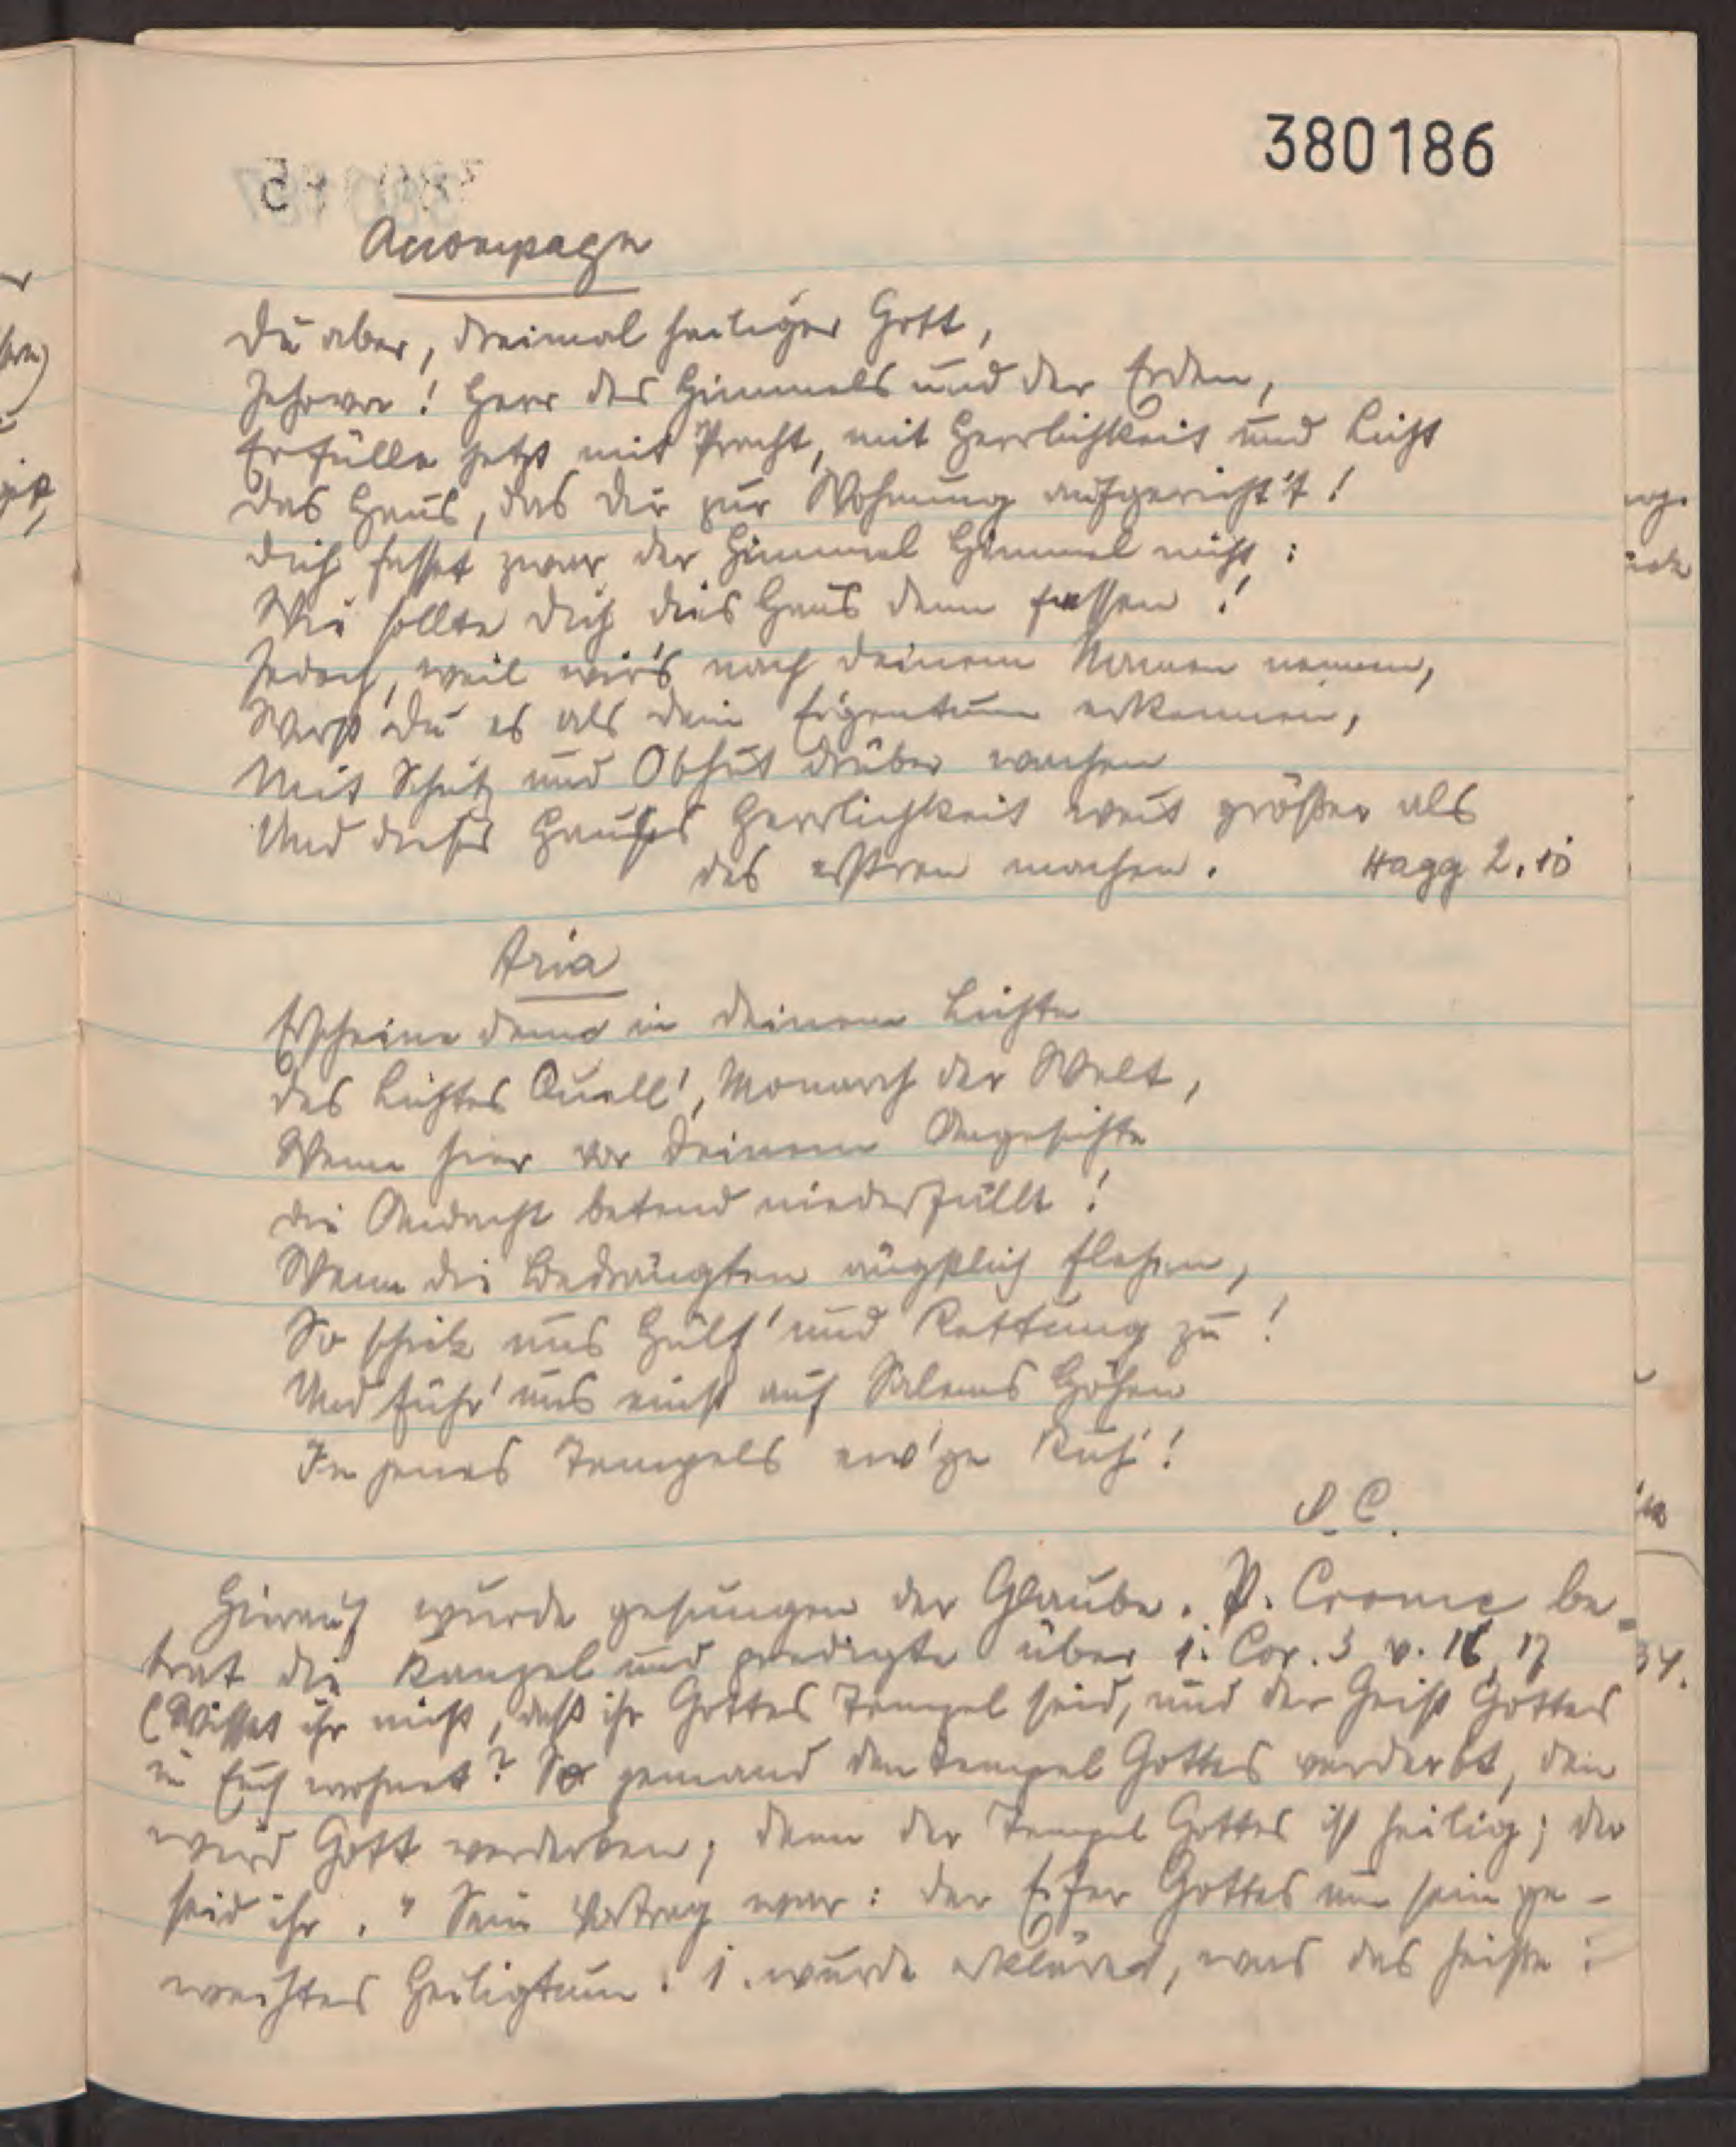 380186
5
Accompagn
Du aber, dreimal heiliger Gott,
Jehova! Herr des Himmels und der Erden,
Erfülle jetzt mit Pracht, mit Herrlichkeit und Licht
das Haus, das dir zur Wohnung aufgericht't!
dich fasset zwar der Himmel Himmel nicht:
Wie sollte dich dies Haus denn fassen!
Jedoch, weil wir's nach deinem Namen nennen,
Wirst du es als dein Eigentum erkennen,
Mit Schutz und Obhut drüber wachen
Und dieses Hauses Herrlichkeit weit größer als
des erstren machen. Hagg 2.10
Aria
Erscheine denn in deinem Lichte
des Lichtes Quell', Monarch der Welt,
Wenn hier vor deinem Angesichte
die Andacht betend niederfällt!
Wenn die Bedrängten ängstlich flehen,
So schick uns Hülf' und Rettung zu!
Und führ' uns einst auf Salems Höhen
In jenes Tempels ew'ge Ruh'!
D.C.
Hierauf wurde gesungen der Glaube. P. Crome be-
trat die Kanzel und predigte über 1. Cor. 3 v. 16, 17
(Wisset ihr nicht, daß ihr Gottes Tempel seid, und der Geist Gottes
in Euch wohnet? So jemand den Tempel Gottes verderbt, den
wird Gott verderben; denn der Tempel Gottes ist heilig; der
seid ihr." Sein Vortrag war: der Eifer Gottes um sein ge-
weihtes Heiligtum. 1. wurde erkläret, was das heiße:
34.